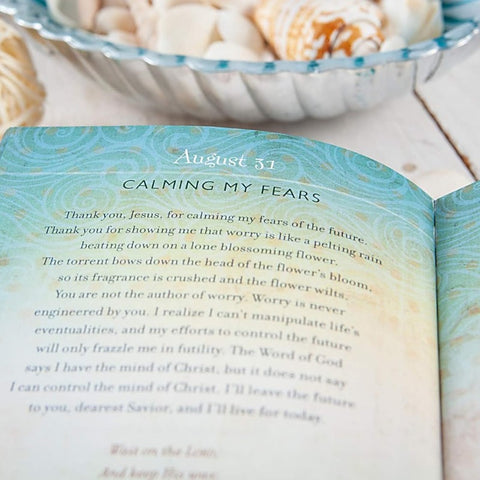 August 31
CALMING MY FEARS
Thank you, Jesus, for calming my fears of the future.
Thank you for showing me that worry is like a pelting rain
beating down on a lone blossoming flower.
The torrent bows down the head of the flower's bloom,
so its fragrance is crushed and the flower wilts.
You are not the author of worry. Worry is never
engineered by you. I realize I can't manipulate life's
eventualities, and my efforts to control the future
will only frazzle me in futility. The Word of God
says I have the mind of Christ, but it does not say
I can control the mind of Christ. I'll leave the future
to you, dearest Savior, and I'll live for today.
Wait on the LORD,
And keep His way,